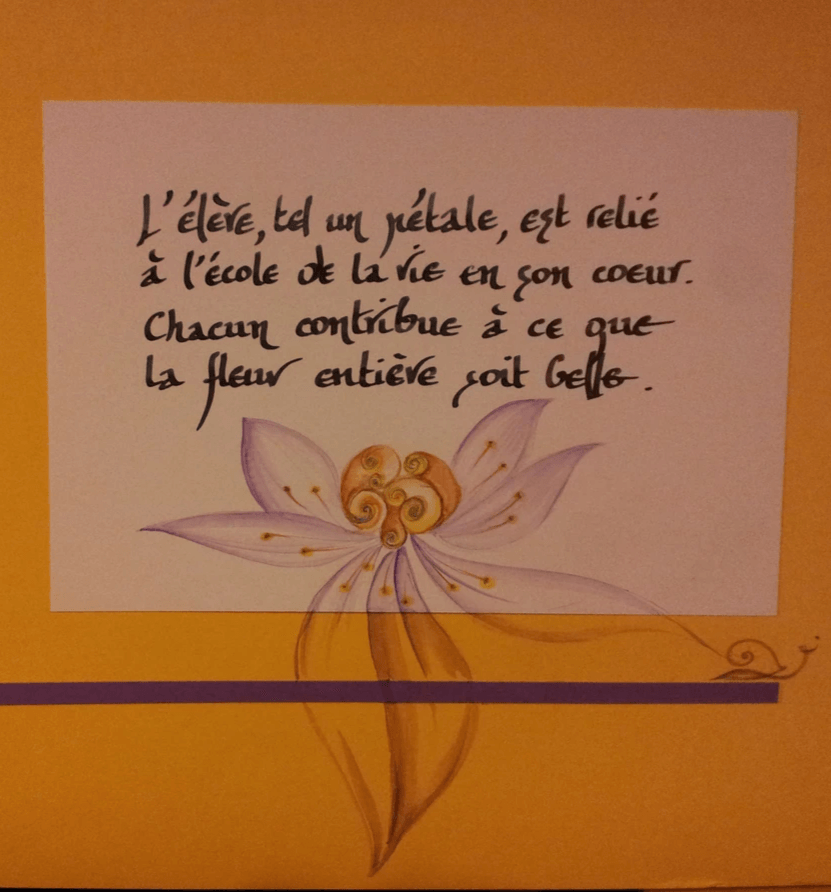 L'élève, tel un pétale, est relié
à l'école de la vie en son coeur.
Chacun contribue à ce que
la fleur entière soit belle.